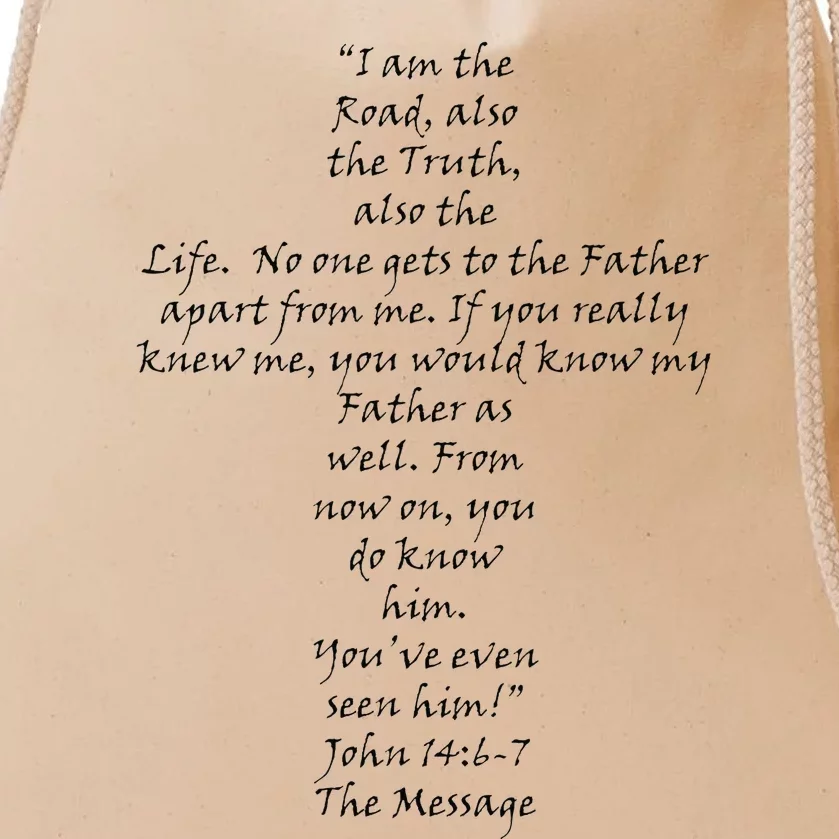 “I am the
Road, also
the Truth,
also the
Life.  No one gets to the Father
apart from me. If you really
knew me, you would know my
Father as
well. From
now on, you
do know
him.
You’ve even
seen him!”
John 14:6-7
The Message